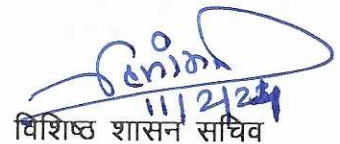 11/2/24
विशिष्ठ शासन सचिव